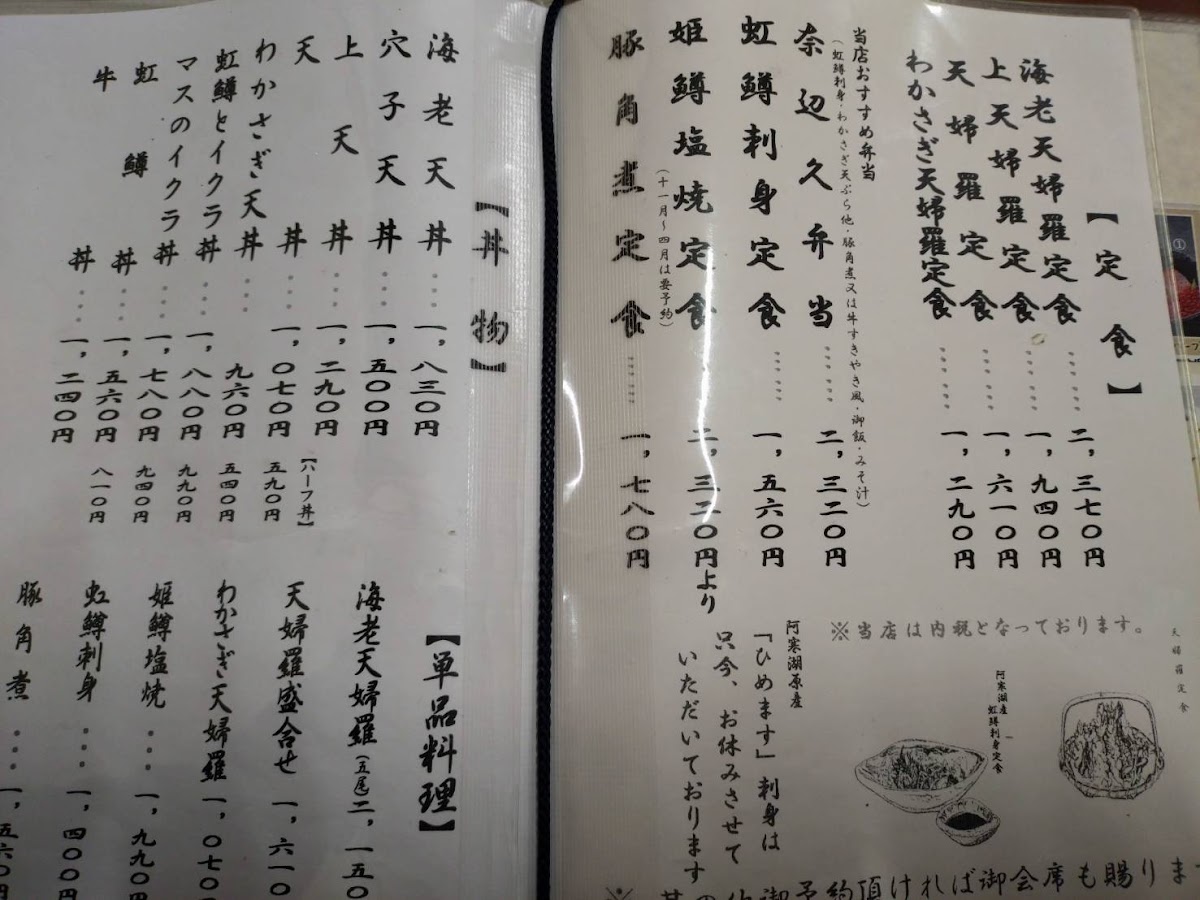 【定食】
海老天婦羅定食……二,三七〇円
上天婦羅定食……一,九四〇円
天婦羅定食……一,六一〇円
わかさぎ天婦羅定食……一,二九〇円
当店おすすめ弁当
(虹鱒刺身・わかさぎ天ぷら他・豚角煮又は牛すきやき風・御飯・みそ汁)
奈辺久弁当……二,三二〇円
虹鱒刺身定食……一,五六〇円
姫鱒塩焼定食……二,三二〇円より
(十一月〜四月は要予約)
豚角煮定食……一,七八〇円
※当店は内税となっております。
天婦羅定食
阿寒湖産
虹鱒刺身定食
阿寒湖原産
「ひめます」刺身は
只今、お休みさせて
いただいております
御予約頂ければ御会席も賜ります
【丼物】
海老天丼……一,八三〇円
穴子天丼……一,五〇〇円
上天丼……一,二九〇円
【ハーフ丼】
天丼……一,〇七〇円 五九〇円
わかさぎ天丼……九六〇円 五四〇円
虹鱒とイクラ丼……一,八八〇円 九九〇円
マスのイクラ丼……一,七八〇円 九四〇円
虹鱒丼……一,五六〇円 八一〇円
牛丼……一,二四〇円
【単品料理】
海老天婦羅(五尾)二,一五〇
天婦羅盛合せ 一,六一〇
わかさぎ天婦羅 一,〇七〇
姫鱒塩焼…一,九九〇
虹鱒刺身…一,四〇〇
豚角煮…一,五六〇